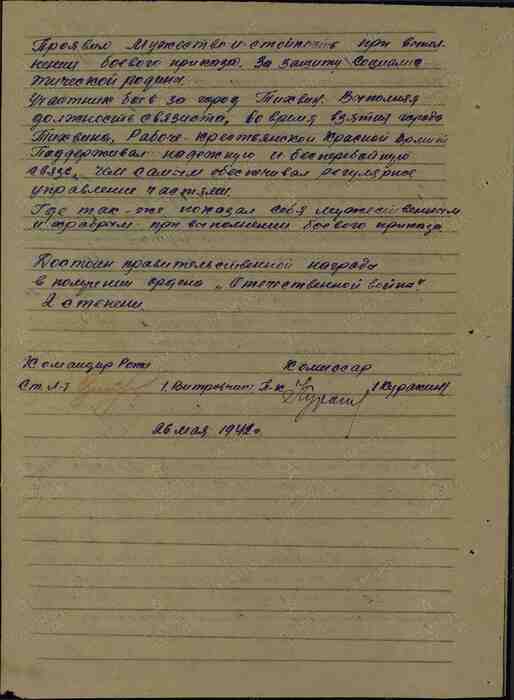 Проявил мужество и стойкость при выпол-
нении боевого приказа. За защиту Социалис
тической родины.
Участник боев за город Тихвин. Выполняя
должность связиста, во время взятия города
Тихвина, Рабоче-Крестьянской Красной Армией
Поддерживал надежную и бесперебойную
связь, чем самым обеспечивал регулярное
управление частями.
Где так-же показал себя мужественным
и храбрым при выполнении боевого приказа
Достоин правительственной награды
в получении ордена „Отечественной война"
2 степени.
Командир Роты Комиссар
Ст. Л-т
26 мая 1942 г.